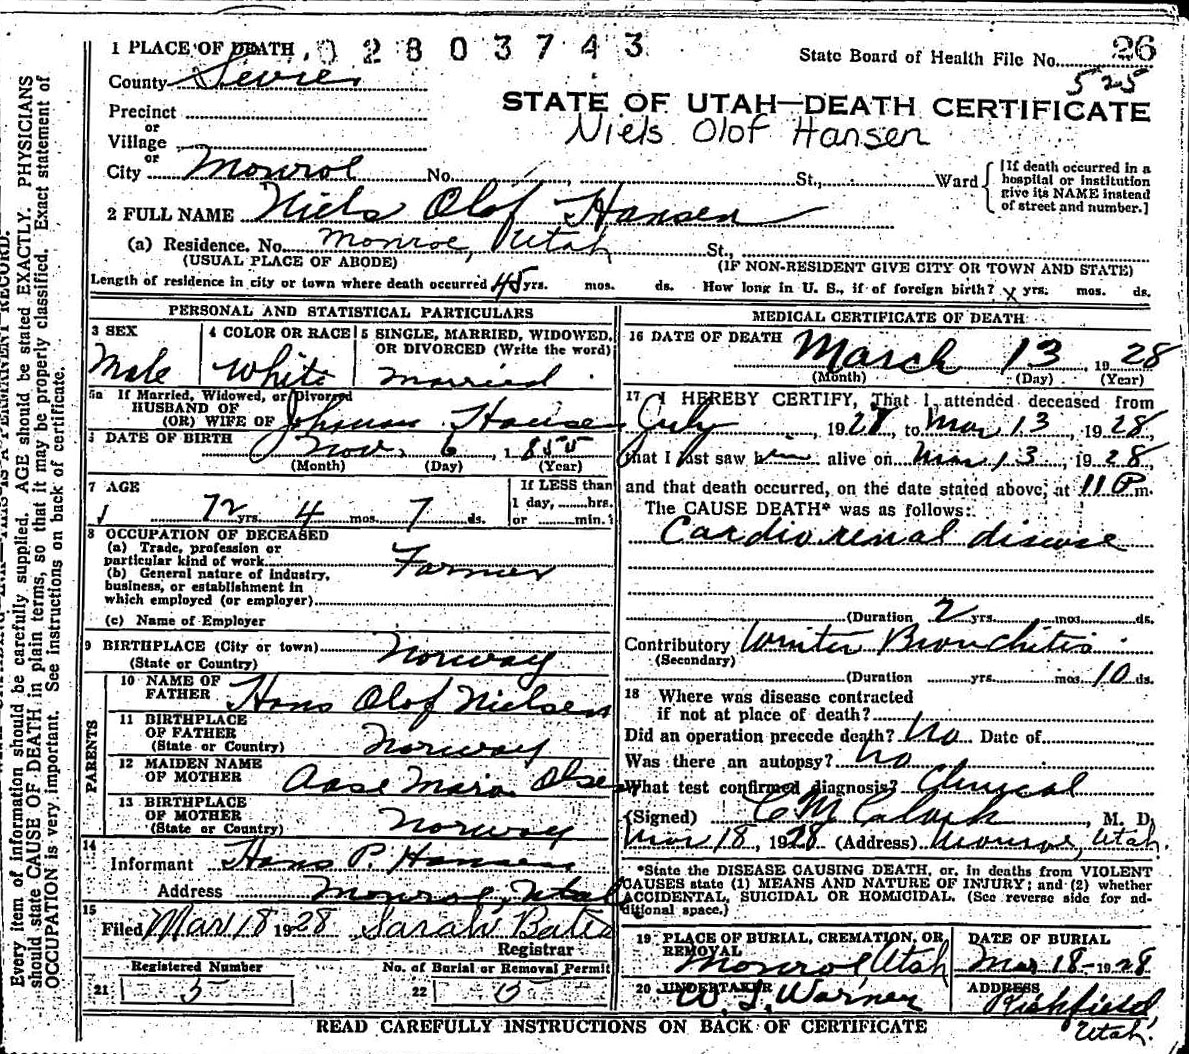 1 PLACE OF DEATH 02803743
State Board of Health File No. 26
County Sevier 525
STATE OF UTAH—DEATH CERTIFICATE
Precinct
or
Village
Niels Olof Hansen
or
City Monroe No. St., Ward
[If death occurred in a
hospital or institution
give its NAME instead
of street and number.]
2 FULL NAME Niels Olof Hansen
(a) Residence. No. Monroe, Utah St.,
(USUAL PLACE OF ABODE) (IF NON-RESIDENT GIVE CITY OR TOWN AND STATE)
Length of residence in city or town where death occurred 45 yrs. mos. ds. How long in U. S., if of foreign birth? x yrs. mos. ds.
PERSONAL AND STATISTICAL PARTICULARS
3 SEX
Male
4 COLOR OR RACE
White
5 SINGLE, MARRIED, WIDOWED,
OR DIVORCED (Write the word)
Married
5a If Married, Widowed, or Divorced
HUSBAND OF
(OR) WIFE OF Hansen
DATE OF BIRTH Nov. 6, 1855
(Month) (Day) (Year)
7 AGE
72 yrs. 4 mos. 7 ds.
If LESS than
1 day, hrs.
or min.
8 OCCUPATION OF DECEASED
(a) Trade, profession or
particular kind of work Farmer
(b) General nature of industry,
business, or establishment in
which employed (or employer)
(c) Name of Employer
9 BIRTHPLACE (City or town) Norway
(State or Country)
PARENTS
10 NAME OF
FATHER Hans Olof Nielsen
11 BIRTHPLACE
OF FATHER
(State or Country) Norway
12 MAIDEN NAME
OF MOTHER Aase Olsen
13 BIRTHPLACE
OF MOTHER
(State or Country) Norway
14
Informant Hans P. Hansen
Address Monroe, Utah
15
Filed Mar 18 1928 Sarah Bates
Registrar
Registered Number
21 5
No. of Burial or Removal Permit
22 5
MEDICAL CERTIFICATE OF DEATH
16 DATE OF DEATH March 13 1928
(Month) (Day) (Year)
17 I HEREBY CERTIFY, That I attended deceased from
July, 1928, to Mar 13, 1928,
that I last saw him alive on Mar 13, 1928,
and that death occurred, on the date stated above, at 11 P m.
The CAUSE DEATH* was as follows:
Cardio renal disease
(Duration 2 yrs. mos. ds.
Contributory Winter Bronchitis
(Secondary)
(Duration yrs. mos. 10 ds.
18 Where was disease contracted
if not at place of death?
Did an operation precede death? No Date of
Was there an autopsy? No
What test confirmed diagnosis? Clinical
(Signed) C M Clark, M. D.
Mar 18, 1928 (Address) Monroe, Utah.
*State the DISEASE CAUSING DEATH, or, in deaths from VIOLENT
CAUSES state (1) MEANS AND NATURE OF INJURY; and (2) whether
ACCIDENTAL, SUICIDAL OR HOMICIDAL. (See reverse side for ad-
ditional space.)
19 PLACE OF BURIAL, CREMATION, OR
REMOVAL
Monroe Utah
DATE OF BURIAL
Mar 18 1928
20 UNDERTAKER
W. J. Warner
ADDRESS
Richfield,
Utah.
READ CAREFULLY INSTRUCTIONS ON BACK OF CERTIFICATE
Every item of information should be carefully supplied. AGE should be stated EXACTLY. PHYSICIANS
should state CAUSE OF DEATH in plain terms, so that it may be properly classified. Exact statement of
OCCUPATION is very important. See instructions on back of certificate.